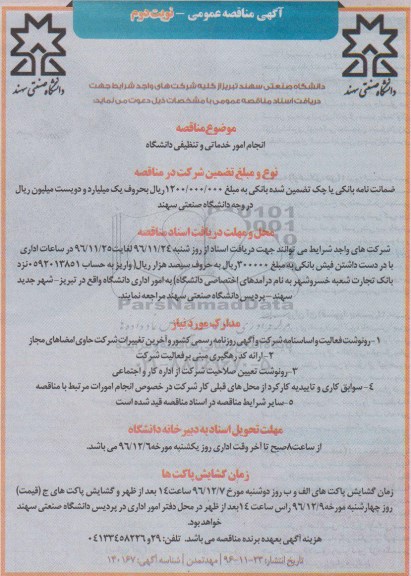 آگهی مناقصه عمومی - نوبت دوم
دانشگاه صنعتی سهند
دانشگاه صنعتی سهند
دانشگاه صنعتی سهند تبریز از کلیه شرکت های واجد شرایط جهت
دریافت اسناد مناقصه عمومی با مشخصات ذیل دعوت می نماید:
موضوع مناقصه
انجام امور خدماتی و تنظیفی دانشگاه
نوع و مبلغ تضمین شرکت در مناقصه
ضمانت نامه بانکی یا چک تضمین شده بانکی به مبلغ ۱۲۰۰/۰۰۰/۰۰۰ ریال بحروف یک میلیارد و دویست میلیون ریال
در وجه دانشگاه صنعتی سهند
محل و مهلت دریافت اسناد مناقصه
شرکت های واجد شرایط می توانند جهت دریافت اسناد از روز شنبه ۹۶/۱۱/۲۴ لغایت ۹۶/۱۱/۲۵ در ساعات اداری
با در دست داشتن فیش بانکی به مبلغ ۳۰۰۰۰۰ ریال به حروف سیصد هزار ریال (واریز به حساب ۵۹۲۰۱۳۸۵۱ نزد
بانک تجارت شعبه خسروشهر به نام درآمدهای اختصاصی دانشگاه) به امور اداری دانشگاه واقع در تبریز - شهر جدید
سهند - پردیس دانشگاه صنعتی سهند مراجعه نمایند.
ParsNamadData
مدارک مورد نیاز
۱- رونوشت فعالیت و اساسنامه شرکت و آگهی روزنامه رسمی کشور و آخرین تغییرات شرکت حاوی امضاهای مجاز
۲- ارائه کد رهگیری مبنی بر فعالیت شرکت
۳- رونوشت تعیین صلاحیت شرکت از اداره کار و اجتماعی
۴- سوابق کاری و تاییدیه کارکرد از محل های قبلی کار شرکت در خصوص انجام امورات مرتبط با مناقصه
۵- سایر شرایط مناقصه در اسناد مناقصه قید شده است
مهلت تحویل اسناد به دبیرخانه دانشگاه
از ساعت ۸ صبح تا آخر وقت اداری روز یکشنبه مورخه ۹۶/۱۲/۶ می باشد.
زمان گشایش پاکت ها
زمان گشایش پاکت های الف و ب روز دوشنبه مورخ ۹۶/۱۲/۷ ساعت ۱۴ بعد از ظهر و گشایش پاکت های ج (قیمت)
روز چهارشنبه مورخه ۹۶/۱۲/۹ راس ساعت ۱۴ بعد از ظهر در محل دفتر امور اداری در پردیس دانشگاه صنعتی سهند
خواهد بود.
هزینه آگهی بعهده برنده مناقصه می باشد. تلفن: ۲۹ و ۰۴۱۳۳۴۵۸۲۲۶
تاریخ انتشار: ۲۳-۱۱-۹۶ | مهدتمدن | شناسه آگهی: ۱۴۰۱۶۷